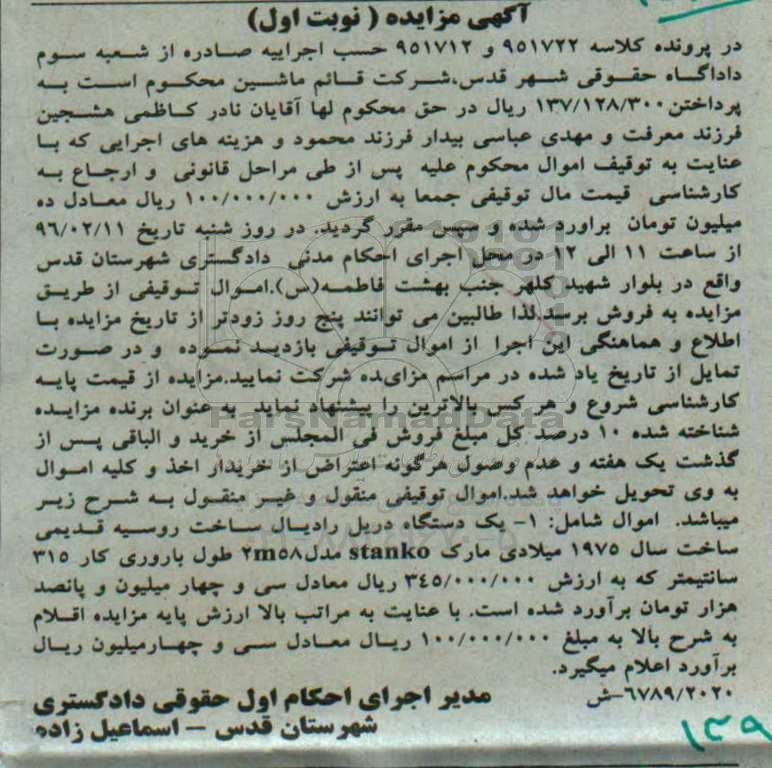 آگهی مزایده ( نوبت اول)
در پرونده کلاسه ۹۵۱۷۲۲ و ۹۵۱۷۱۲ حسب اجراییه صادره از شعبه سوم
داداگاه حقوقی شهر قدس،شرکت قائم ماشین محکوم است به
پرداختن۱۳۷/۱۲۸/۳۰۰ ریال در حق محکوم لها آقایان نادر کاظمی هشجین
فرزند معرفت و مهدی عباسی بیدار فرزند محمود و هزینه های اجرایی که با
عنایت به توقیف اموال محکوم علیه پس از طی مراحل قانونی و ارجاع به
کارشناسی قیمت مال توقیفی جمعا به ارزش ۱۰۰/۰۰۰/۰۰۰ ریال معادل ده
میلیون تومان براورد شده و سپس مقرر گردید. در روز شنبه تاریخ ۹۶/۰۲/۱۱
از ساعت ۱۱ الی ۱۲ در محل اجرای احکام مدنی دادگستری شهرستان قدس
واقع در بلوار شهید کلهر جنب بهشت فاطمه(س).اموال توقیفی از طریق
مزایده به فروش برسد.لذا طالبین می توانند پنج روز زودتر از تاریخ مزایده با
اطلاع و هماهنگی این اجرا از اموال توقیفی بازدید نموده و در صورت
تمایل از تاریخ یاد شده در مراسم مزایده شرکت نمایید.مزایده از قیمت پایه
کارشناسی شروع و هر کس بالاترین را پیشنهاد نماید به عنوان برنده مزایده
شناخته شده ۱۰ درصد کل مبلغ فروش فی المجلس از خرید و الباقی پس از
گذشت یک هفته و عدم وصول هرگونه اعتراض از خریدار اخذ و کلیه اموال
به وی تحویل خواهد شد.اموال توقیفی منقول و غیر منقول به شرح زیر
میباشد. اموال شامل: ۱- یک دستگاه دریل رادیال ساخت روسیه قدیمی
ساخت سال ۱۹۷۵ میلادی مارک stanko مدل۲m۵۸ طول باروری کار ۳۱۵
سانتیمتر که به ارزش ۳۴۵/۰۰۰/۰۰۰ ریال معادل سی و چهار میلیون و پانصد
هزار تومان برآورد شده است. با عنایت به مراتب بالا ارزش پایه مزایده اقلام
به شرح بالا به مبلغ ۱۰۰/۰۰۰/۰۰۰ ریال معادل سی و چهارمیلیون ریال
برآورد اعلام میگیرد.
۶۷۸۹/۲۰۲۰-ش
مدیر اجرای احکام اول حقوقی دادگستری
شهرستان قدس – اسماعیل زاده
۱۳۹
ParsNamadData